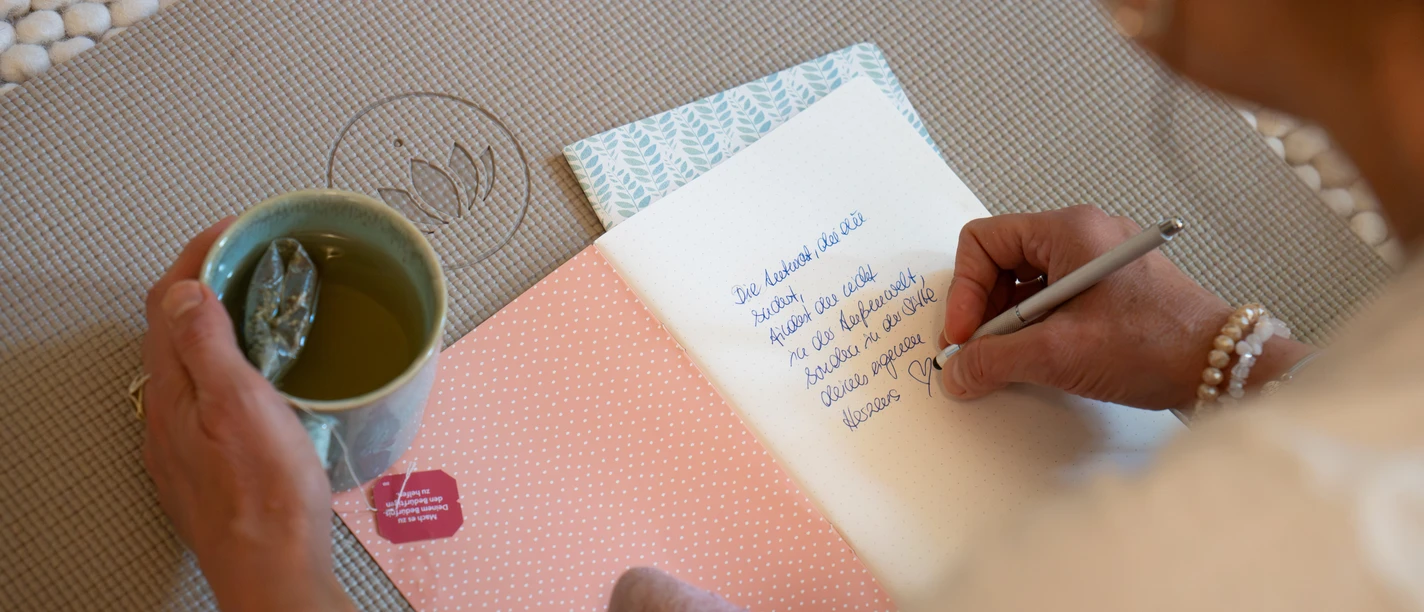 Die Antwort, die du
suchst,
findest du nicht
in der Außenwelt,
sondern in der Stille
deines eigenen
Herzens
Mach es zu
Deinem Bedürfnis
den Bedürftigen
zu helfen.